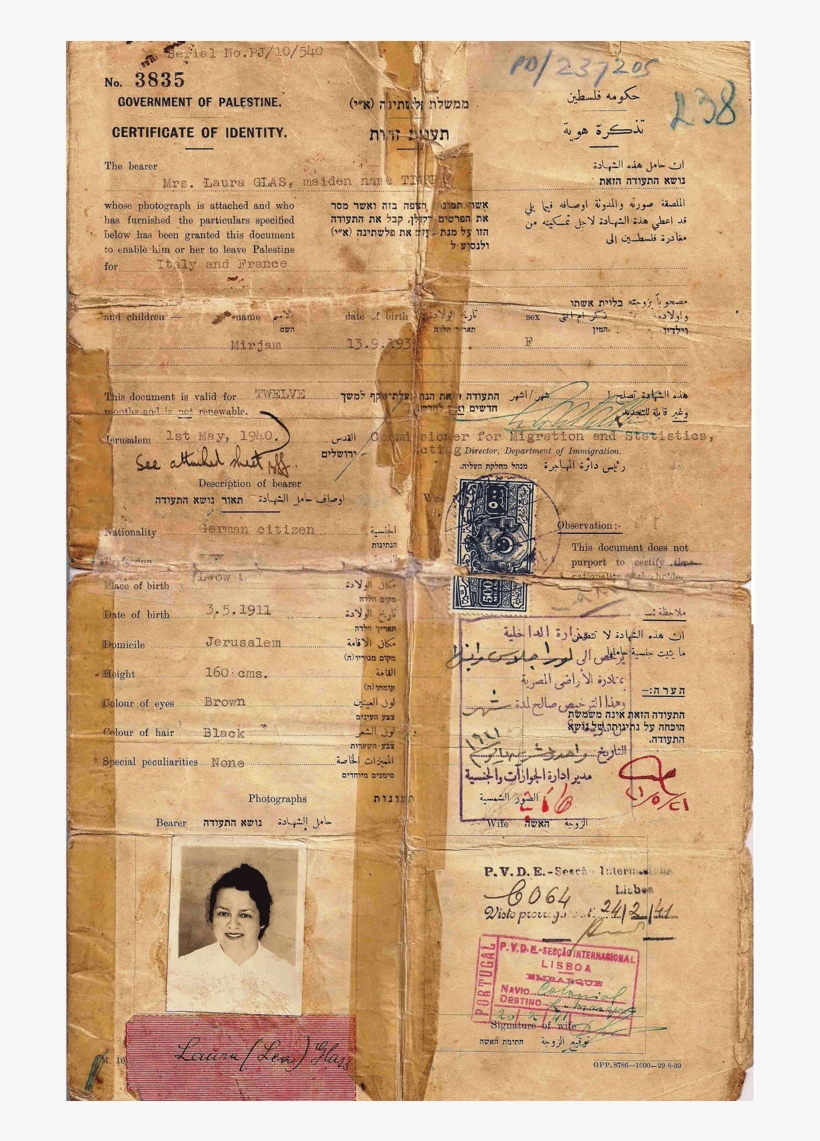 Serial No.PJ/10/540
PD/237205
No. 3835
238
GOVERNMENT OF PALESTINE.
ממשלת פלשתינה (א״י)
حكومه فلسطين
CERTIFICATE OF IDENTITY.
תעודת זהות
تذكرة هوية
The bearer
ان حامل هذه الشهادة
נושא התעודה הזאת
Mrs. Laura GLAS, maiden name
whose photograph is attached and who
has furnished the particulars specified
below has been granted this document
to enable him or her to leave Palestine
for Italy and France
אשר תמונתו רצופה בזה ואשר מסר
את הפרטים דלקלן, קבל את התעודה
הזו על מנת לעזוב את פלשתינה (א״י)
ולנסוע ל
الملصقة صورته والمدونة اوصافه فيما يلي
قد اعطي هذه الشهادة لاجل تمكينه من
مغادرة فلسطين الى
مصحوباً بزوجته בלויית אשתו
and children — name الاسم date of birth تاريخ الولادة sex ذكر ام انثى واولاده
השם תאריך הלדה המין וילדיו
Mirjam 13.9.193 F
This document is valid for TWELVE
months and is not renewable.
התעודה הזאת הנה בעלת תוקף למשך
חדשים ואין לחדשה
هذه الشهادة تصلح لـ شهر/اشهر
وغير قابلة للتجديد
Jerusalem 1st May, 1940.
القدس
ירושלים
Commissioner for Migration and Statistics,
Acting Director, Department of Immigration.
מנהל מחלקת העליה. رئيس دائرة المهاجرة
See attached sheet
Description of bearer
תאור נושא התעודה اوصاف حامل الشهادة
Nationality German citizen الجنسية
הנתינות
Profession
Place of birth Lwow مكان الولادة
מקום הלדה
Date of birth 3.5.1911 تاريخ الولادة
תאריך הלדה
Domicile Jerusalem مكان الاقامة
מקום מגוריו(ה)
Height 160 cms. القامة
קומתו(ה)
Colour of eyes Brown لون العينين
צבע העינים
Colour of hair Black لون الشعر
צבע השערות
Special peculiarities None المميزات الخاصة
סימנים מיוחדים
Photographs תמונות
Bearer נושא התעודה حامل الشهادة
500
Observation:-
This document does not
purport to certify the
nationality of the holder
ملاحظة :—
ان هذه الشهادة لا تتضمن
ما يثبت جنسية حاملها
הערה:—
התעודה הזאת אינה משמשת
הוכחה על נתינותו של נושא
התעודה.
وزارة الداخلية
يرخص الى
بمغادرة الأراضى المصرية
وهذا الترخيص صالح لمدة شهر
١٩٤١
التاريخ
مدير ادارة الجوازات والجنسية
الصور الشمسية
Wife האשה الزوجة
P.V.D.E.-Secção Internacional
Lisboa
6064
24/2/41
PORTUGAL
P.V.D.E.-SECÇÃO INTERNACIONAL
LISBOA
EMBARQUE
NAVIO Colonial
DESTINO
20/2/41
Signature of wife
חתימת האשה توقيع الزوجة
Laura (Lea) Glass
GPP. 8786—1000—29-8-39